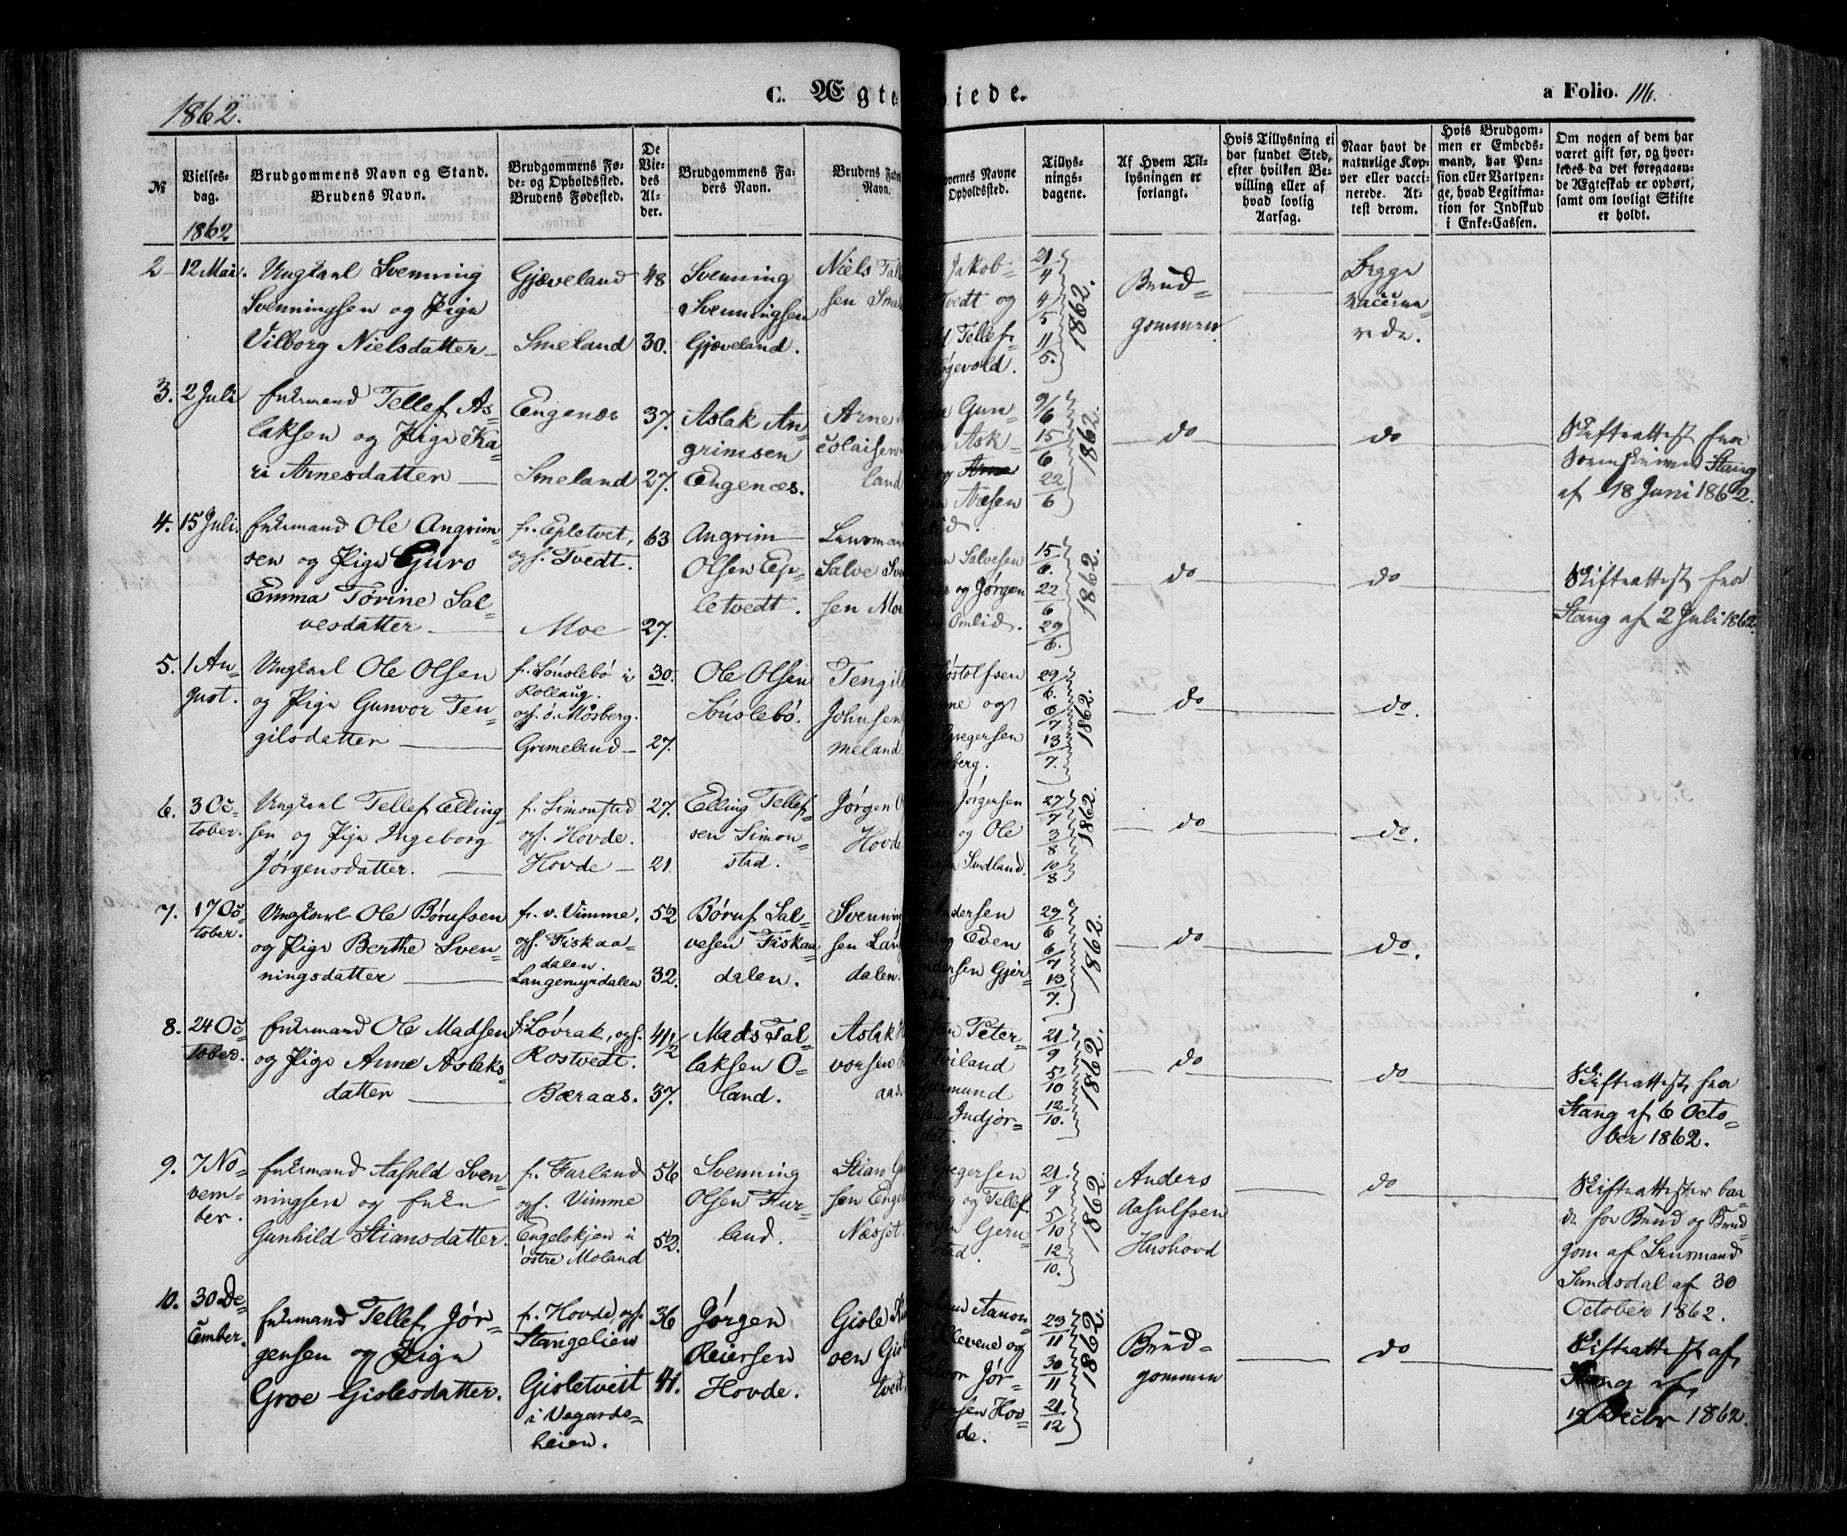 1862.
C. Ægte
viede.
a Folio. 116.
№
Vielses-
dag.
1862
Brudgommens Navn og Stand.
Brudens Navn.
Brudgommens Fø-
de- og Opholdsted.
Brudens Fødested.
De
Vie-
des
Al-
der.
Brudgommens Fa-
ders Navn.
Brudens Fad
Navn.
overnes Navne
Opholdsted.
Tillys-
nings-
dagene.
Af Hvem Til-
lysningen er
forlangt.
Hvis Tillysning ei
har fundet Sted,
efter hvilken Be-
villing eller af
hvad lovlig
Aarsag.
Naar havt de
naturlige Kop-
per eller vacci-
nerede. At-
test derom.
Hvis Brudgom-
men er Embeds-
mand, har Pen-
sion eller Vartpen-
ge, hvad Legitima-
tion for Indskud
i Enke-Cassen.
Om nogen af dem har
været gift før, og hvor-
ledes da det foregaaen-
de Ægteskab er ophørt,
samt om lovligt Skifte
er holdt.
2 12 Mai. Ungkarl Svenning
Svenningsen og Pige
Vilborg Nielsdatter
Gjæveland
Smeland
48
30.
Svenning
Svenningsen
Gjæveland.
Niels Tal
sen Sme
Jakob-
vedt og
Tellef
Høgevold.
21/4
4/5
11/5.
1862.
Brud-
gommen.
Begge
vaccine-
rede.
3. 2 Juli Enkemand Tellef As-
laksen og Pige Ka-
ri Arnesdatter
Engenæs
Smeland
37.
27.
Aslak An-
grimsen
Engenæs.
Arne
colaisen
land
Gun-
Ask
9/6
15/6
22/6
1862.
do
do
Skifteattest fra
Stang
af 18 Juni 1862.
4. 15 Juli. Enkemand Ole Angrim-
sen og Pige Guro
Emma Tørine Sal-
vesdatter
fr. Epletvet,
ops. Tvedt.
Moe
63
27.
Angrim
Olsen Ep-
letvedt.
Lensman
Salve Sve
sen Mo
Salvesen
og Jørgen
Omlid.
15/6.
22/6
29/6.
1862.
do
do
Skifteattest fra
Stang af 2 Juli 1862.
5. 1 Au-
gust.
Ungkarl Ole Olsen
og Pige Gunvor Ten-
gilsdatter
fr. Sønslebø i
Rollaug.
ops. ø. Møsberg.
Grimeland
30.
27.
Ole Olsen
Sønslebø.
Tengil
Johnsen
meland
ostolfsen
og
Gregersen
berg.
29/6.
6/7
13/7.
1862.
do
do.
6. 3 Oc-
tober.
Ungkarl Tellef Elling-
sen og Pige Ingeborg
Jørgensdatter.
fr. Simonsted
ops. Hovde.
Hovde
27.
21.
Elling Tellef-
sen Simon-
stad.
Jørgen O
Hovde
Jørgensen
og Ole
Sindland.
27/7
3/8
10/8
1862.
do
do.
7. 17 Oc-
tober.
Ungkarl Ole Børufsen
og Pige Berthe Sven-
ningsdatter
fr. v. Vimme,
ops. Fiskaa-
dalen.
Langemyrdalen
52
32.
Børuf Sal-
vesen Fiskaa
dalen.
Svenning
sen Lan
dalen.
Andersen
og Even
Andersen Gjer-
29/6
6/7
13/7.
1862.
do
do.
8. 24 Oc-
tober.
Enkemand Ole Madsen
og Pige Anne Aslaks-
datter
fr. Løvrak, ops.
Rostvedt.
Bæraas.
41 1/2
37.
Mads Tal-
laksen O-
land.
Aslak
vorsen
aas.
Peter-
Indjør-
det.
21/9
5/10
12/10.
1862.
do
do
Skifteattest fra
Stang af 6 Octo-
ber 1862.
9. 7 No-
vem-
ber.
Enkemand Aasuld Sven-
ningsen og Enke
Gunhild Stiansdatter.
fr. Furland
ops. Vimme
Engelskjøn i
østre Moland
56
52.
Svenning
Olsen Fur-
land.
Stian Gu
sen Enge
Næsjet
Gregersen
og Tellef
Geru-
stad.
21/9
5/10
12/10.
1862.
Anders
Aasulfsen
Hushovd
do
Skifteattester baa-
de for Brud og Brud
gom af Lensmand
Sundsdal af 30
October 1862.
10. 30 De-
cember.
Enkemand Tellef Jør-
gensen og Pige
Groe Gislesdatter.
fr. Hovde, ops.
Stangelien
Gisletveit
i Vegards-
heien.
36
41.
Jørgen
Reiersen
Hovde.
Gisle
sen Gis
tveit
Aanon-
Ellevene og
Jør-
gensen Hov-
de.
23/11
30/11
21/12
1862.
Brud-
gommen
do
Skifteattest af
Stang af
19 Decbr 1862.